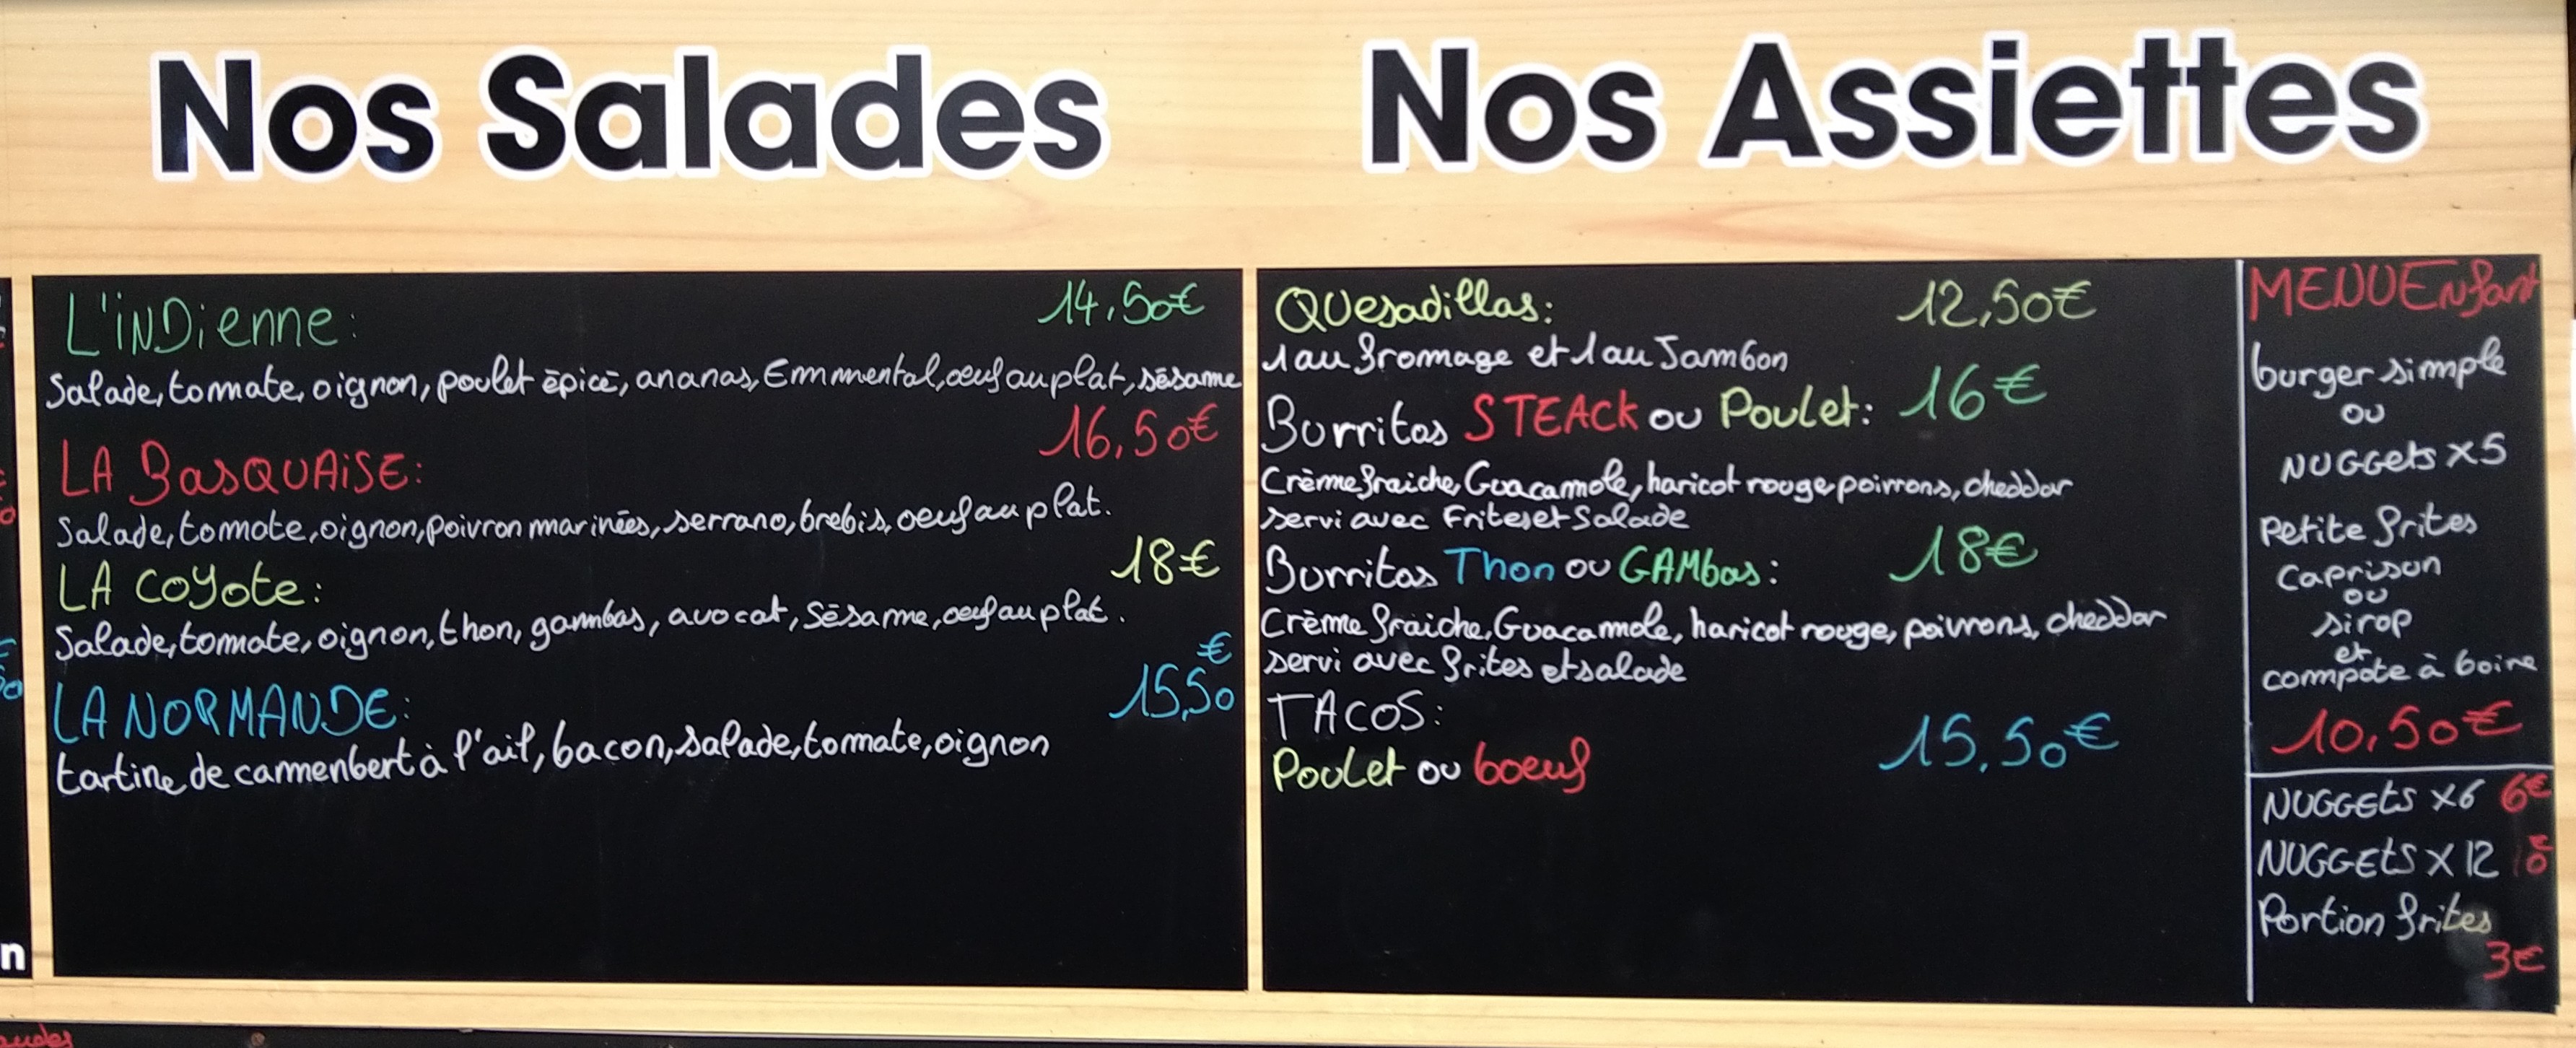 Nos Salades
L'iNDienne: 14,50€
Salade, tomate, oignon, poulet épicé, ananas, Emmental, oeuf au plat, sésame
LA BasQUAiSE: 16,50€
Salade, tomate, oignon, poivron marinées, serrano, brebis, oeuf au plat.
LA COyote: 18€
Salade, tomate, oignon, thon, gambas, avocat, Sésame, oeuf au plat.
LA NORMANDE: 15,50€
tartine de camenbert à l'ail, bacon, salade, tomate, oignon
Nos Assiettes
QUesadillas: 12,50€
1 au fromage et 1 au Jambon
Burritos STEACK ou Poulet: 16€
Crème fraiche, Guacamole, haricot rouge, poivrons, cheddar
servi avec Frites et Salade
Burritos Thon ou GAMbas: 18€
Crème fraiche, Guacamole, haricot rouge, poivrons, cheddar
servi avec frites et salade
TACOS:
Poulet ou boeuf 15,50€
MENU Enfant
burger simple
ou
NUGGets X5
Petite frites
Caprisun
ou
sirop
et
compote à boire
10,50€
NUGGEts X6 6€
NUGGEts X 12
Portion frites
3€